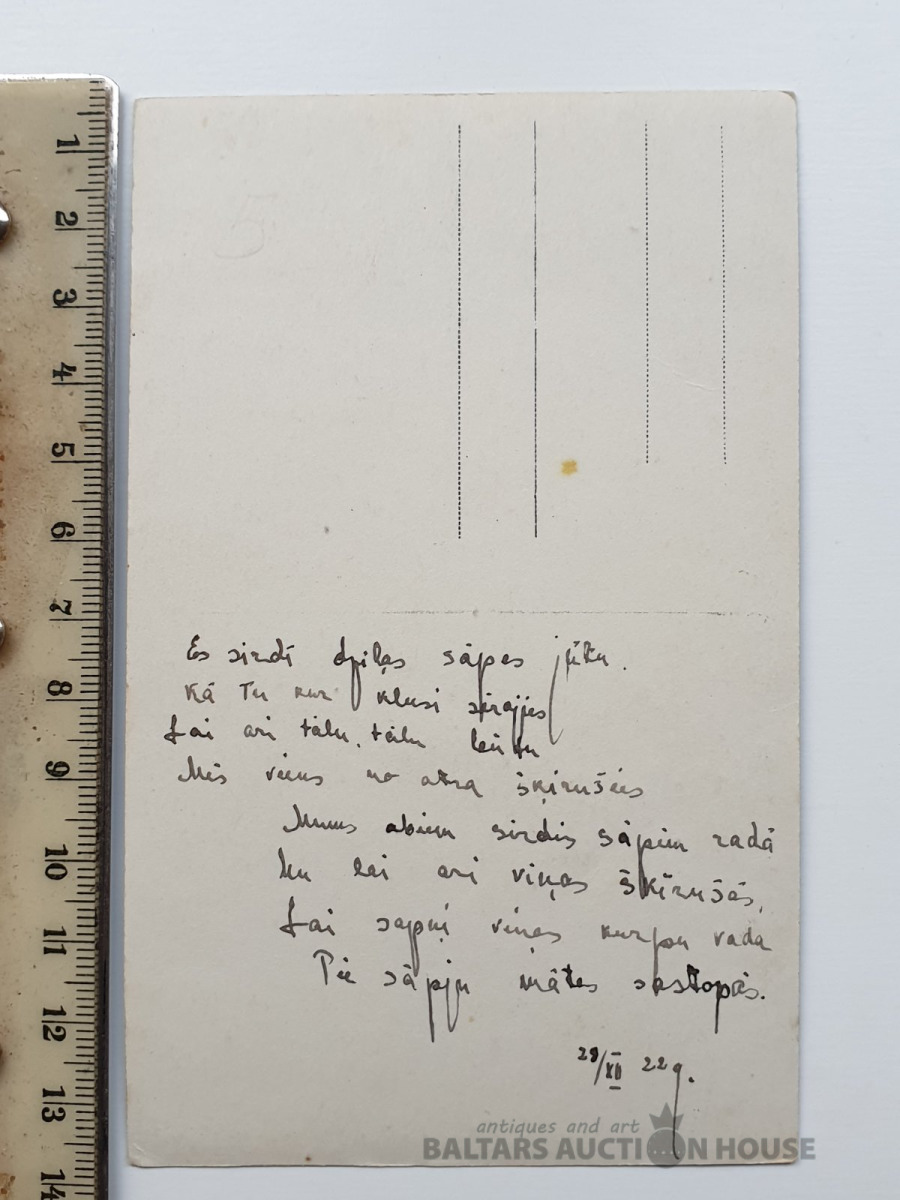 1
2
3
4
5
6
7
8
9
10
11
12
13
14
5
Es sirdī dziļas sāpes jūtu.
Kā Tu kur klusi
Lai ari tālu, tālu
Mēs viens no otra šķirušēis
Mums abiem sirdis sāpēm radā
Un lai ari viņas šķīrušās,
Lai sapņi viņas kurpu vada
Pie sāpju mātes sastopās.
29/XII 22g.
antiques and art
BALTARS AUCTION HOUSE